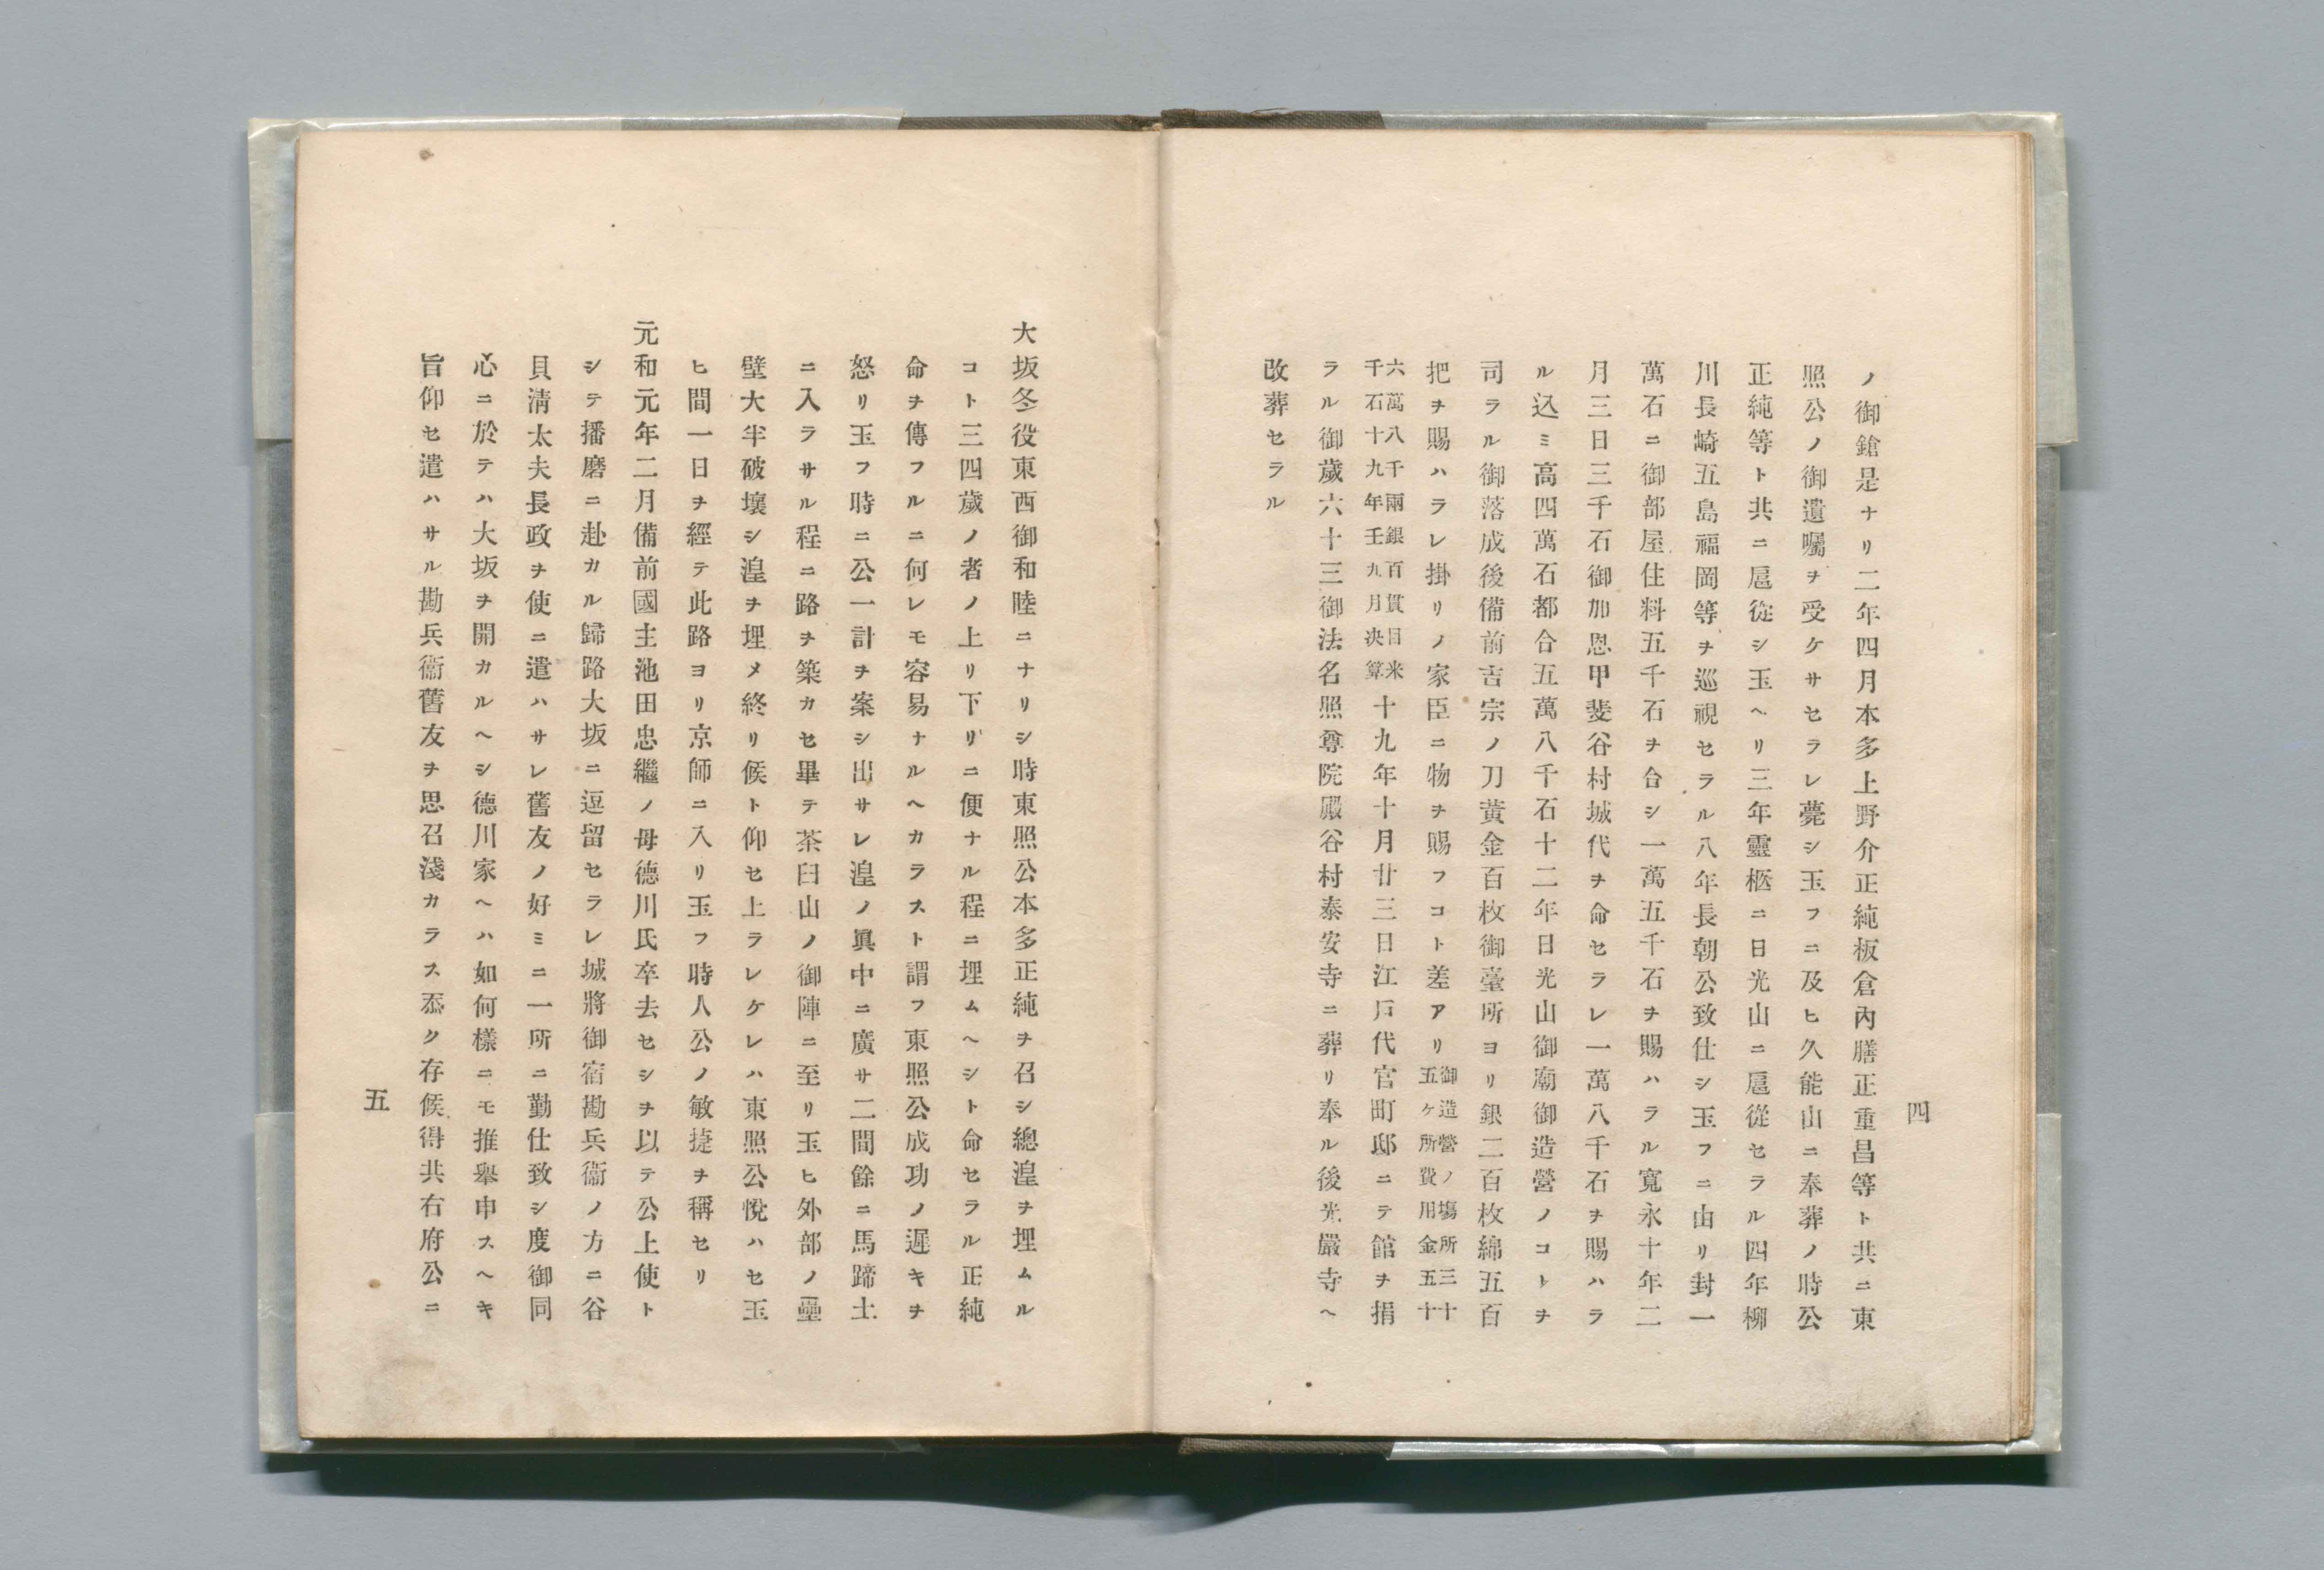 四
ノ御鎗是ナリ二年四月本多上野介正純板倉內膳正重昌等ト共ニ東
照公ノ御遺囑ヲ受ケサセラレ薨シ玉フニ及ヒ久能山ニ奉葬ノ時公
正純等ト共ニ扈從シ玉ヘリ三年靈柩ニ日光山ニ扈從セラル四年柳
川長崎五島福岡等ヲ巡視セラル八年長朝公致仕シ玉フニ由リ封一
萬石ニ御部屋住料五千石ヲ合シ一萬五千石ヲ賜ハラル寬永十年二
月三日三千石御加恩甲斐谷村城代ヲ命セラレ一萬八千石ヲ賜ハラ
ル込ミ高四萬石都合五萬八千石十二年日光山御廟御造營ノコトヲ
司ラル御落成後備前吉宗ノ刀黃金百枚御臺所ヨリ銀二百枚綿五百
把ヲ賜ハラレ掛リノ家臣ニ物ヲ賜フコト差アリ御造營ノ塲所三十五ケ所費用金五十
六萬八千兩銀百貫目米千石十九年壬九月决算十九年十月廿三日江戶代官町邸ニテ館ヲ捐
ラル御歲六十三御法名照尊院殿谷村泰安寺ニ葬リ奉ル後光嚴寺ヘ
改葬セラル
大坂冬役東西御和陸ニナリシ時東照公本多正純ヲ召シ總湟ヲ埋ムル
コト三四歲ノ者ノ上リ下リニ便ナル程ニ埋ムヘシト命セラル正純
命ヲ傳フルニ何レモ容易ナルヘカラスト謂フ東照公成功ノ遲キヲ
怒リ玉フ時ニ公一計ヲ案シ出サレ湟ノ眞中ニ廣サ二間餘ニ馬蹄土
ニ入ラサル程ニ路ヲ築カセ畢テ茶臼山ノ御陣ニ至リ玉ヒ外部ノ壘
壁大半破壞シ湟ヲ埋メ終リ候ト仰セ上ラレケレハ東照公悅ハセ玉
ヒ間一日ヲ經テ此路ヨリ京師ニ入リ玉フ時人公ノ敏捷ヲ稱セリ
元和元年二月備前國主池田忠繼ノ母德川氏卒去セシヲ以テ公上使ト
シテ播磨ニ赴カル歸路大坂ニ逗留セラレ城將御宿勘兵衞ノ方ニ谷
貝淸太夫長政ヲ使ニ遣ハサレ舊友ノ好ミニ一所ニ勤仕致シ度御同
心ニ於テハ大坂ヲ開カルヘシ德川家ヘハ如何樣ニモ推擧申スヘキ
旨仰セ遣ハサル勘兵衞舊友ヲ思召淺カラス忝ク存候得共右府公ニ
五